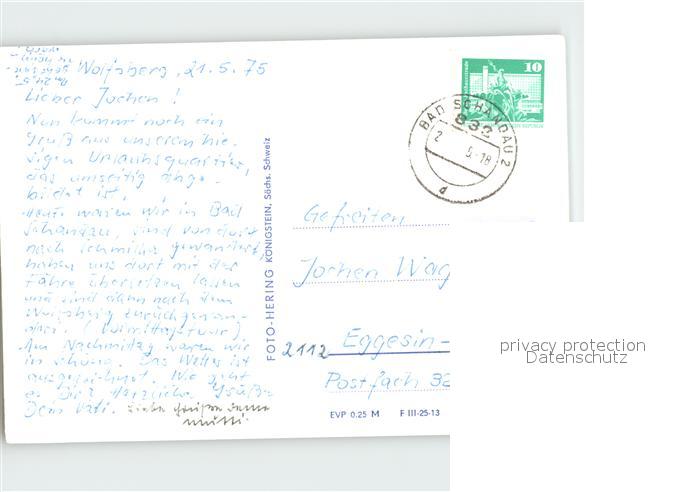 Wolfsberg, 21.5.75
Lieber Jochen!
Nun kommt noch ein
Gruß aus unserem hie-
sigen Urlaubsquartier,
das umseitig abge-
bildet ist.
Heute waren wir in Bad
Schandau, sind von dort
nach Schmilka gewandert,
haben uns dort mit der
Fähre übersetzen lassen
und sind dann nach dem
Wolfsberg zurückgewan-
dert. (Vormittagstour)
Am Nachmittag waren wir
in Schöna. Das Wetter ist
ausgezeichnet. Wie geht
es Dir? Herzliche Grüße
Dein Vati. Liebe Grüße Deine
Mutti.
FOTO-HERING KÖNIGSTEIN, Sächs. Schweiz
10
BAD SCHANDAU 2
832
d
Gefreiten
Jochen Wag
2112 Eggesin-
Postfach 32
EVP 0.25 M F III-25-13
privacy protection
Datenschutz